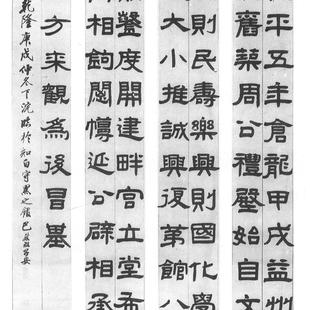 平五年倉龍甲戌益州
舊築周公禮壂始自文
則民壽樂興則國化
大小推誠興復第館八
鑿度開建畔宮立堂布
相鉤閣幬延公辟相承
方來觀為後冒基
乾隆庚戌仲冬下浣臨於知白守黑之館巴慰祖